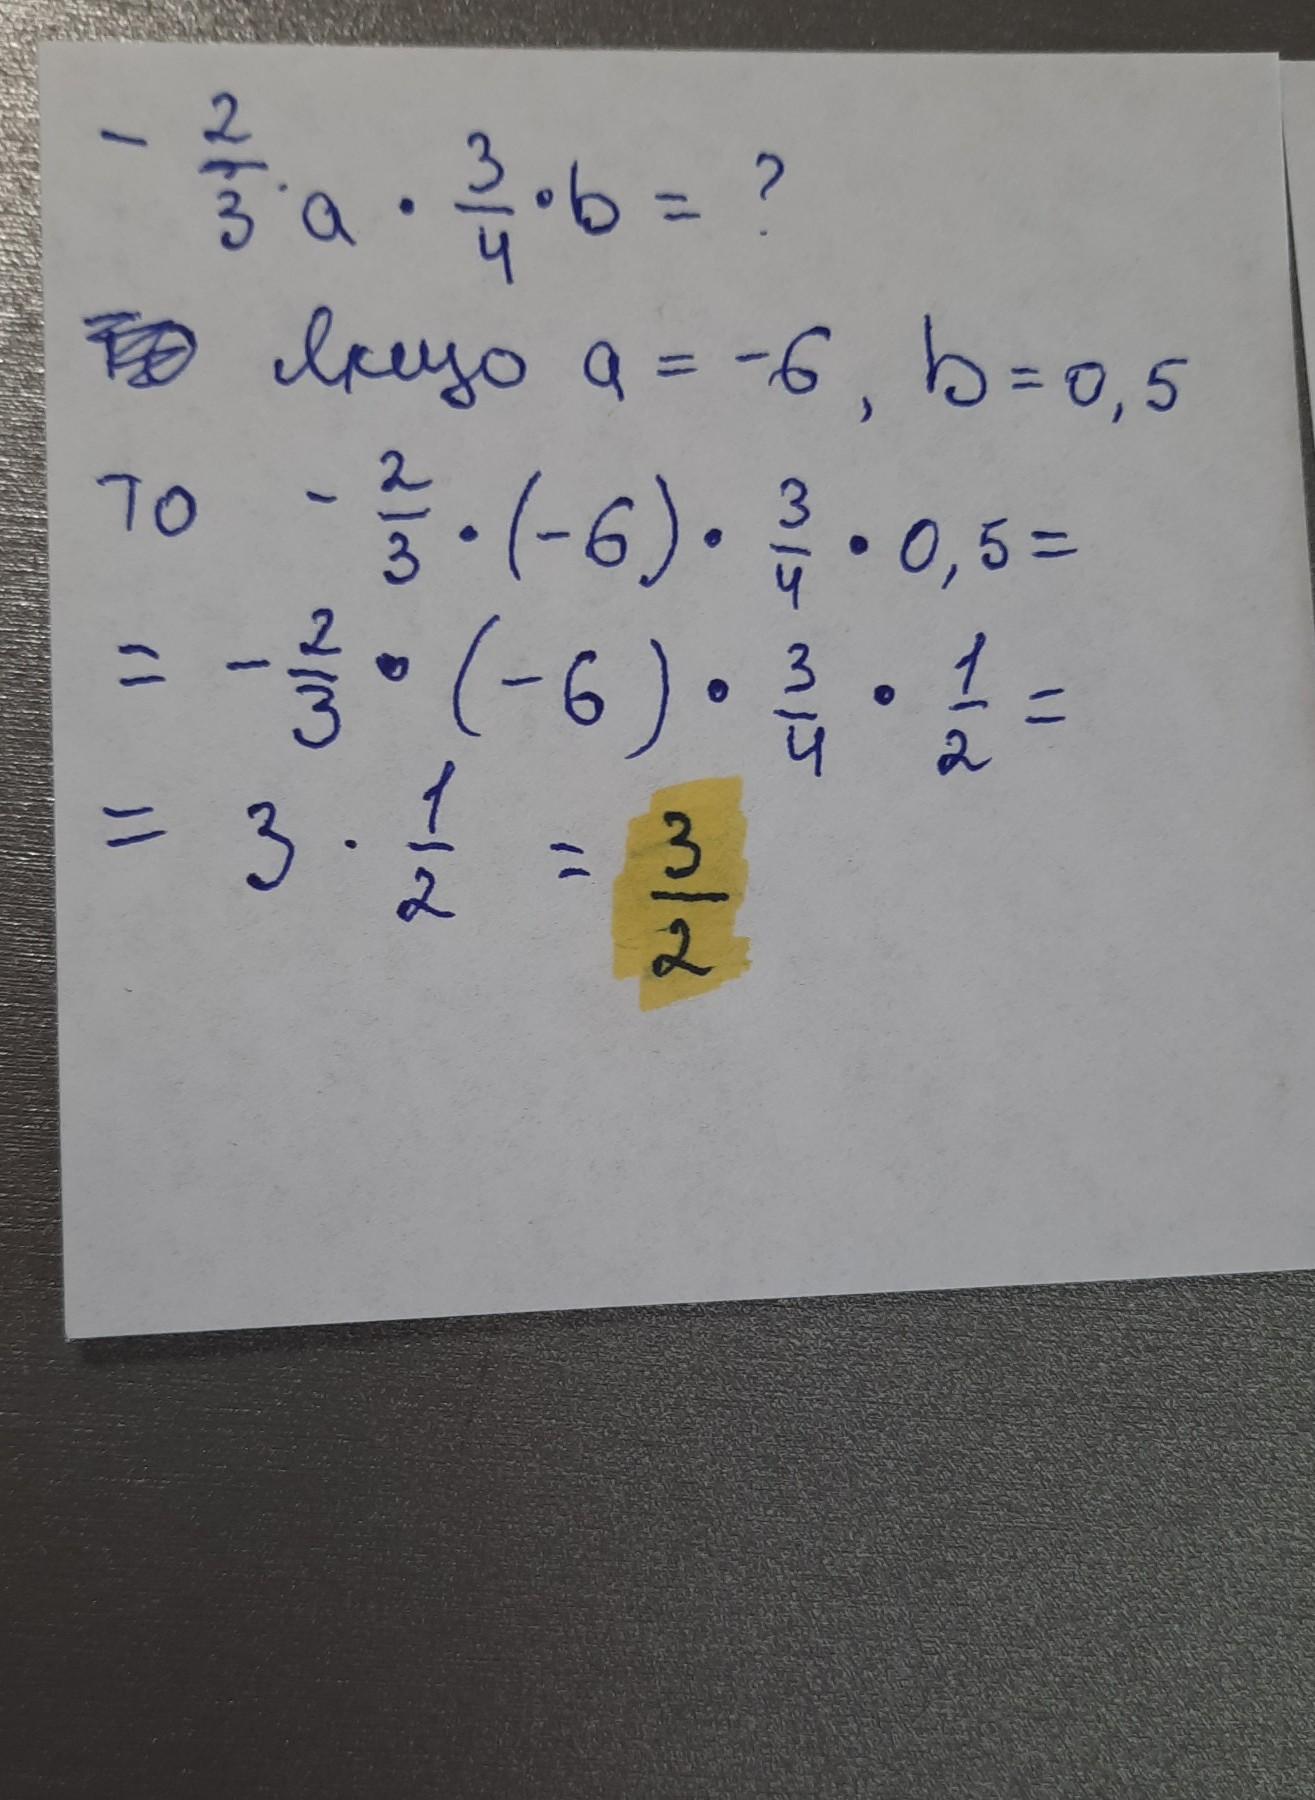 - 2/3 · a · 3/4 · b = ?
Якщо a = -6, b = 0,5
то - 2/3 · (-6) · 3/4 · 0,5 =
= - 2/3 · (-6) · 3/4 · 1/2 =
= 3 · 1/2 = 3/2